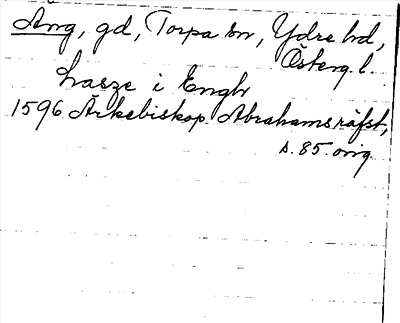 Äng, gd, Torpa sn, Ydre hd,
Österg. l.
Lasze i Engh
1596 Ärkebiskop Abrahams räfst,
s. 85. orig.